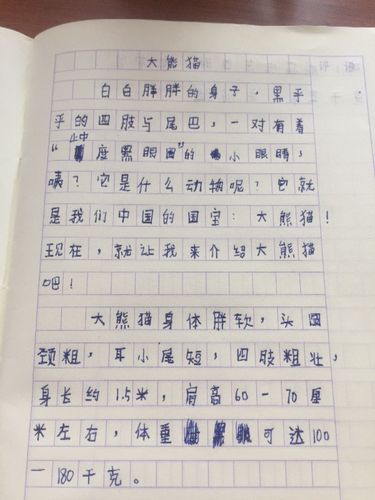 大熊猫
白白胖胖的身子，黑乎
乎的四肢与尾巴，一对有着
“ 座黑眼圈”的小眼睛，
咦？它是什么动物呢？它就
是我们中国的国宝：大熊猫！
现在，就让我来介绍大熊猫
吧！
大熊猫身体胖软，头圆
颈粗，耳小尾短，四肢粗壮，
身长约1.5米，肩高60一70厘
米左右，体重可达100
一180千克。